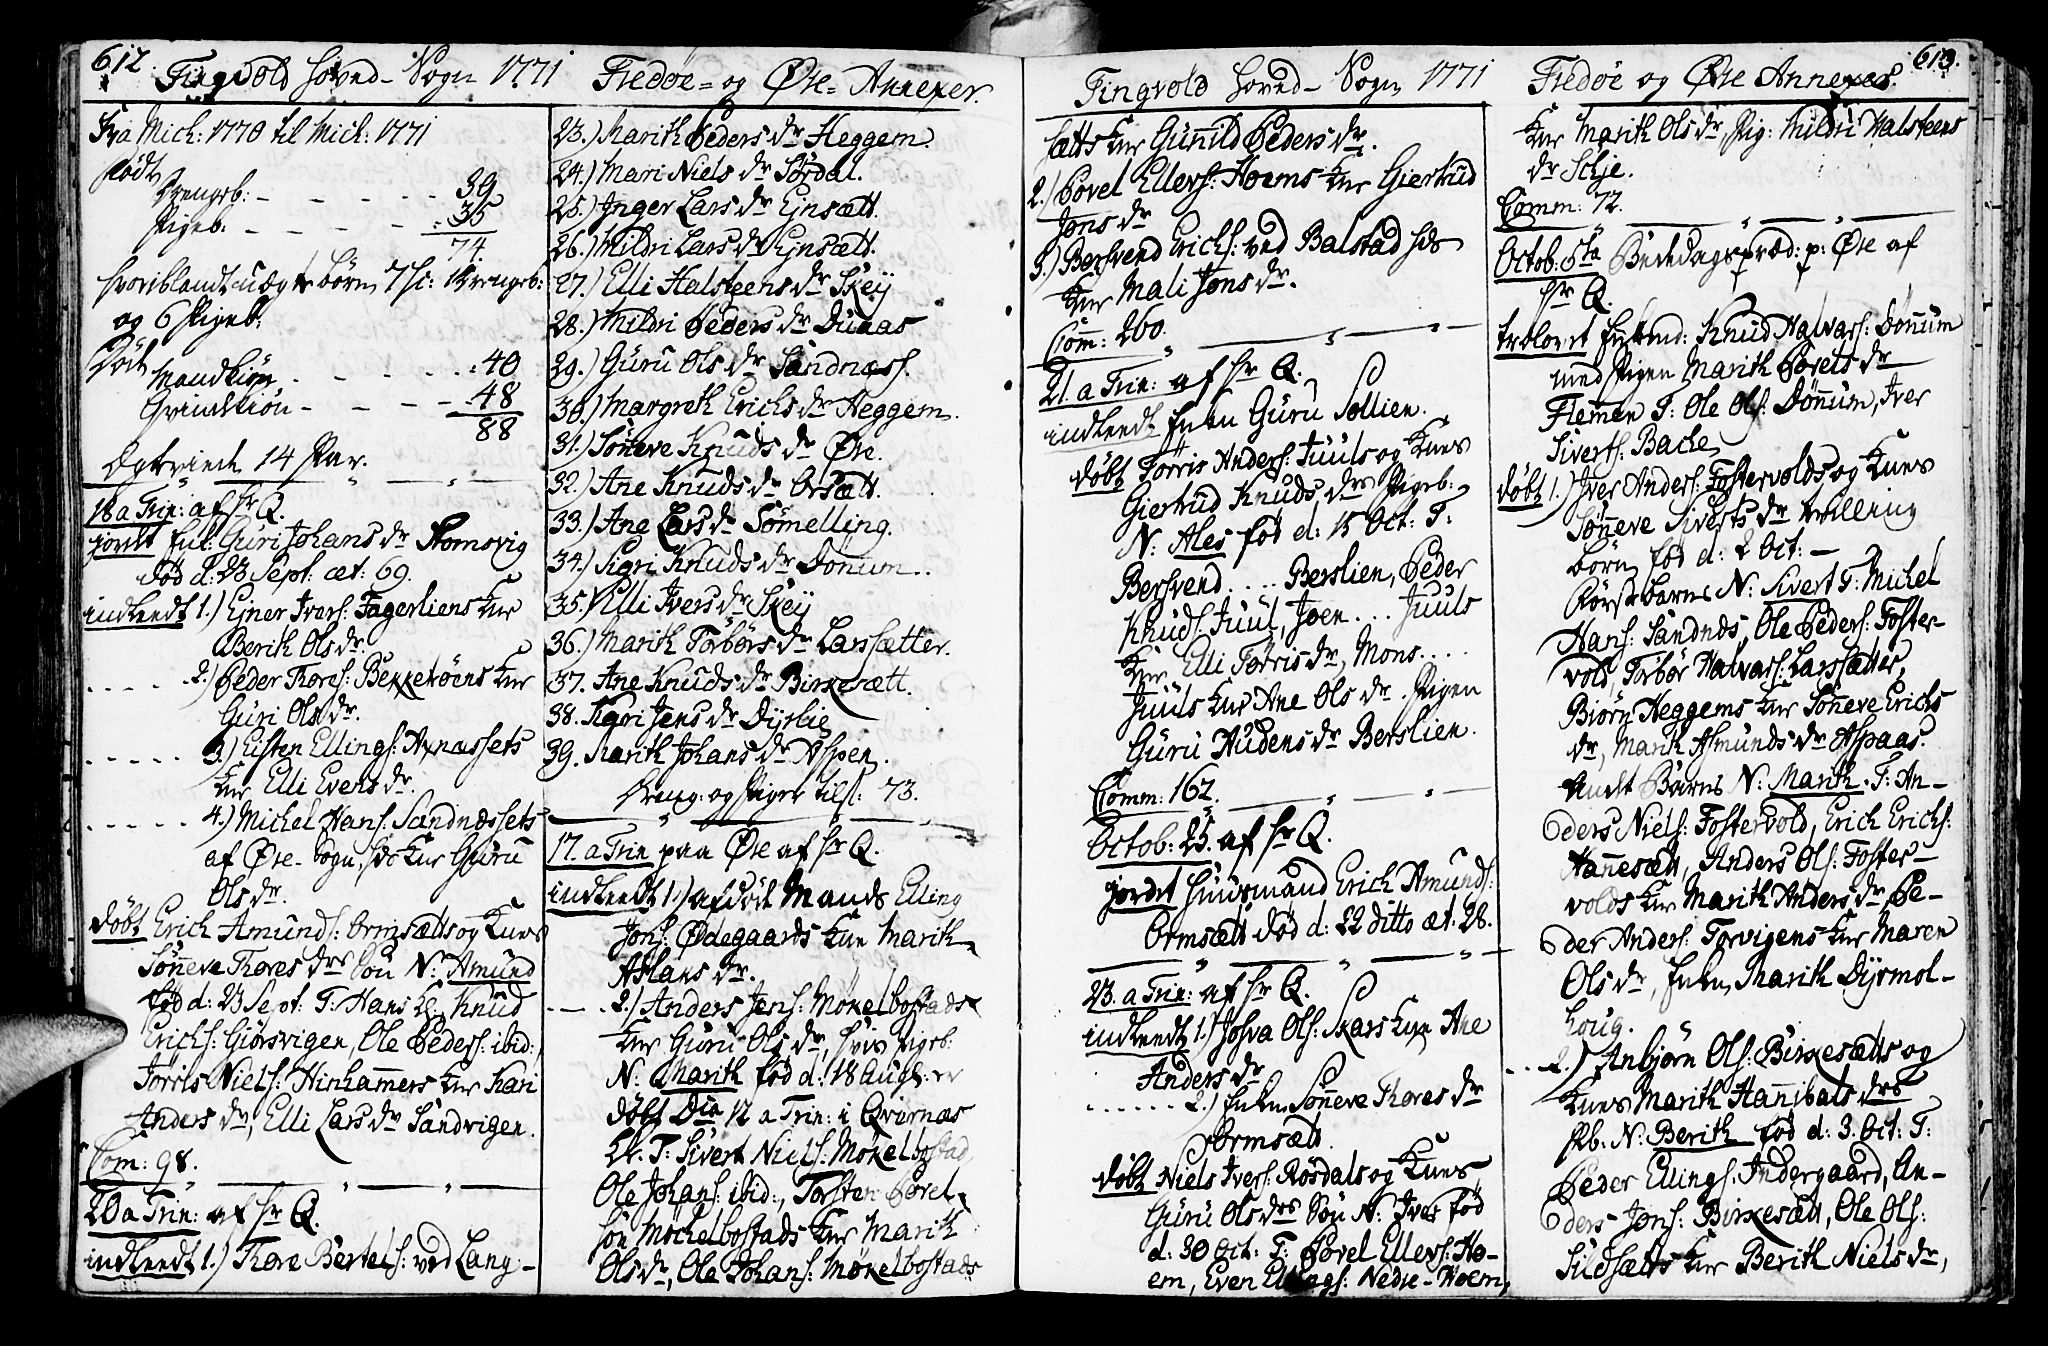 612.
Tingvold Hoved-Sogn 1771
Fra Mich: 1770 til Mich: 1771
födt
Drengeb: - - - - - 39
Pigeb: - - - - - 35
74.
hvoriblandt uægte børn 7 sc: 1 Drengeb:
og 6 Pigeb:
Död
Mandkiön - - - - 40
Qvindkiön - - - - 48
88
Ogteviede 14 Par.
18 a Trin: af Hr Q.
jordet Enk: Guri Johans dr Stomsvig
död d: 23 Sept: æt: 69.
indleedt 1.) Ejner Ivers: Fagerliens Kne
Berith Ols dr.
. . . . . 2.) Peder Thores: Bekketröens Kne
Guri Ols dr.
. . . . . 3.) Eisten Ellings: Axnæssets
Kne Elli Evens dr.
. . . . . 4.) Michel Hans: Sandnessets
af Øre-Sogn, hds Kne Guru
Ols dr.
döbt Erich Amunds: Ormsætts og Knes
Sönneve Thores drs Sön N: Amund
föd d: 23 Sept: T: Hans Knud
Erichs: Giörsvigen, Ole Peders: ibid:,
Törris Niels: Hinhammers Kne Kari
Anders dr, Elli Lars dr Sandvigen.
Com: 98.
20 a Trin: af Hr Q.
indleedt 1.) Thore Bertels: ved Lang-
Fredöe- og Øre- Annexer.
23.) Marith Peders dr Heggem.
24.) Mari Niels dr Sördal.
25.) Inger Lars dr Ejnsætt.
26.) Mildri Lars dr Ejnsætt.
27.) Elli Halsteens dr Skey
28.) Mildri Peders dr Duaas
29.) Guru Ols dr Sandness.
30.) Margreth Erichs dr Heggem.
31.) Söneve Knuds dr Øre.
32.) Ane Knuds dr Orsætt.
33.) Ane Lars dr Sömelling.
34.) Sigri Knuds dr Dönum.
35.) Elli Ivers dr Skey
36.) Marith Torbörs dr Larssætter.
37. Ane Knuds dr Birkesætt.
38. Kari Jens dr Dyrlie
39. Marith Johans dr Aspen.
Dreng: og Piger tils: 73.
17. a Trin paa Øre af Hr Q.
indleedt 1.) afdöde Mands Elling
Jons: Ødegaards Kne Marith
Aslaks dr.
. . . . 2.) Anders Jens: Mökelbostads
Kne Guru Ols dr, hvis Pigeb:
N: Marith föd d: 18 Aug: er
döbt Dca 12 a Trin: i Qvirnæs
T: Sivert Niels: Mökelbostad
Ole Johans: ibid:, Torsten Povel-
sön Möckelbostads Kne Marith
Ols dr, Ole Johans: Mökelbostads
613.
Tingvold Hoved-Sogn 1771
sætts Kne Gunild Peders dr.
2.) Povel Ellers: Hoems Kne Giertrud
Jons dr
3.) Bersvend Erichs: ved Balstad hds
Kne Mali Jons dr.
Comm: 260.
21. a Trin: af Hr Q.
indleedt Enken Guru Sollien.
döbt Törris Anders: Juuls og Knes
Giertrud Knuds drs Pigeb:
N: Ales föd d: 15 Oct: T:
Bersvend . . . . Berslien, Peder
Knuds: Juul, Joen . . . Juuls
Kne Elli Törris dr, Mons . . . .
Juuls Kne Ane Ols dr. Pigen
Guru Audens dr Berslien.
Comm: 162.
Octob: 25. af Hr Q.
jordet Huusmand Erich Amunds:
Ormsætt död d: 22 ditto æt: 28.
23. a Trin: af Hr Q.
indleedt 1.) Josva Ols: Skars Kne Ane
Anders dr
. . . . . . 2.) Enken Sönneve Thores dr
Ormsætt.
döbt Niels Ivers: Rösdals og Knes
Guru Ols drs Sön N: Iver föd
d: 30 Oct: T: Povel Ellers: Ho-
em, Even Ellings: Nedre-Hoem,
Fredöe og Øre Annexer.
Kne Marith Ols dr, Pig: Mildri Halsteens
dr Schje.
Comm: 72.
Octob: 5ta Bededagspræd: p: Øre af
Hr Q.
trolovet Enkemd: Knud Halvars: Dönnum
med Pigen Marith Povels dr
Flemen T: Ole Ols: Dönnum, Iver
Siverts: Bache,
döbt 1.) Iver Anders: Fostervolds og Knes
Sönneve Siverts drs tvilling
börn föd d: 2 Oct: -
Första barns N: Sivert T: Michel
Hans: Sandnes, Ole Peders: Foster-
vold, Torbör Halvars: Larssætter,
Biörn Heggems Kne Söneve Erichs
dr, Marith Asmunds dr Aspaas.
Andt Barns N: Marith. T: An-
ders Niels: Fostervold, Erich Erichs:
Hannesætt, Anders Ols: Foster-
volds Kne Marith Anders dr, Pe-
der Anders: Torvigens Kne Maren
Ols dr, Enken Marith Dyrmol-
houg.
. . . 2.) Anbjörn Ols: Birkesætts og
Knes Marith Hannibals drs
Pb: N: Berith föd d: 3. Oct: T:
Peder Ellings: Indergaard, An-
ders Jons: Birkesætt, Ole Ols:
Sildsætts Kne Berith Niels dr,